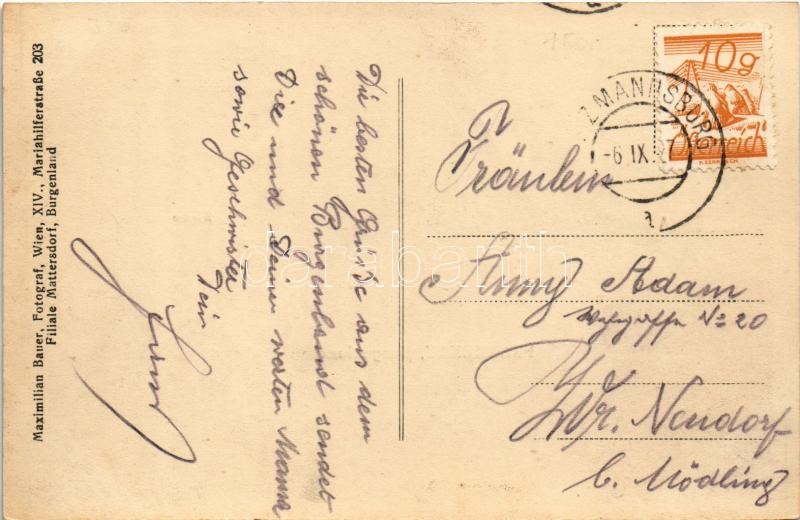 Maximilian Bauer, Fotograf, Wien, XIV., Mariahilferstraße 203
Filiale Mattersdorf, Burgenland
Die besten Grüße aus dem
schönen Burgenland sendet
Dir und Deiner werten Mama
sowie Geschwister
Dein
10g
Österreich
ZMANNSBURG
-6.IX.
Fräulein
Anny Adam
No 20
Wr. Neudorf
b. Mödling
darabanth